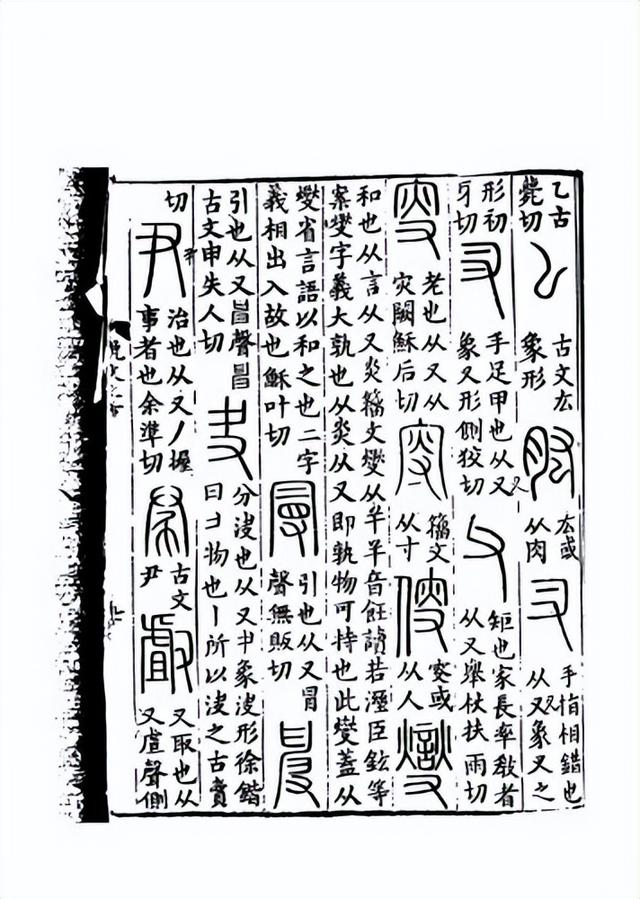 乙古
薨切
厷
古文厷
象形
肱
厷或
从肉
叉
手指相錯也
从又象叉之
形初
牙切
㕚
手足甲也从又
象叉形側狡切
父
矩也家長率敎者
从又舉杖扶雨切
叜
老也从又从
灾闕穌后切
籒文
从寸
傁
叜或
从人
燮
和也从言从又炎籒文燮从𢆉𢆉音飪讀若溼臣鉉等
案燮字義大孰也从炎从又即孰物可持也此燮蓋从
燮省言語以和之也二字
義相出入故也穌叶切
曼
引也从又冒
聲無販切
引也从又𦥔聲𦥔
古文申失人切
夬
分決也从又象決形徐鍇
曰コ物也丨所以決之古賣
切
尹
治也从又丿握
事者也余準切
古文
尹
又取也从
又虘聲側